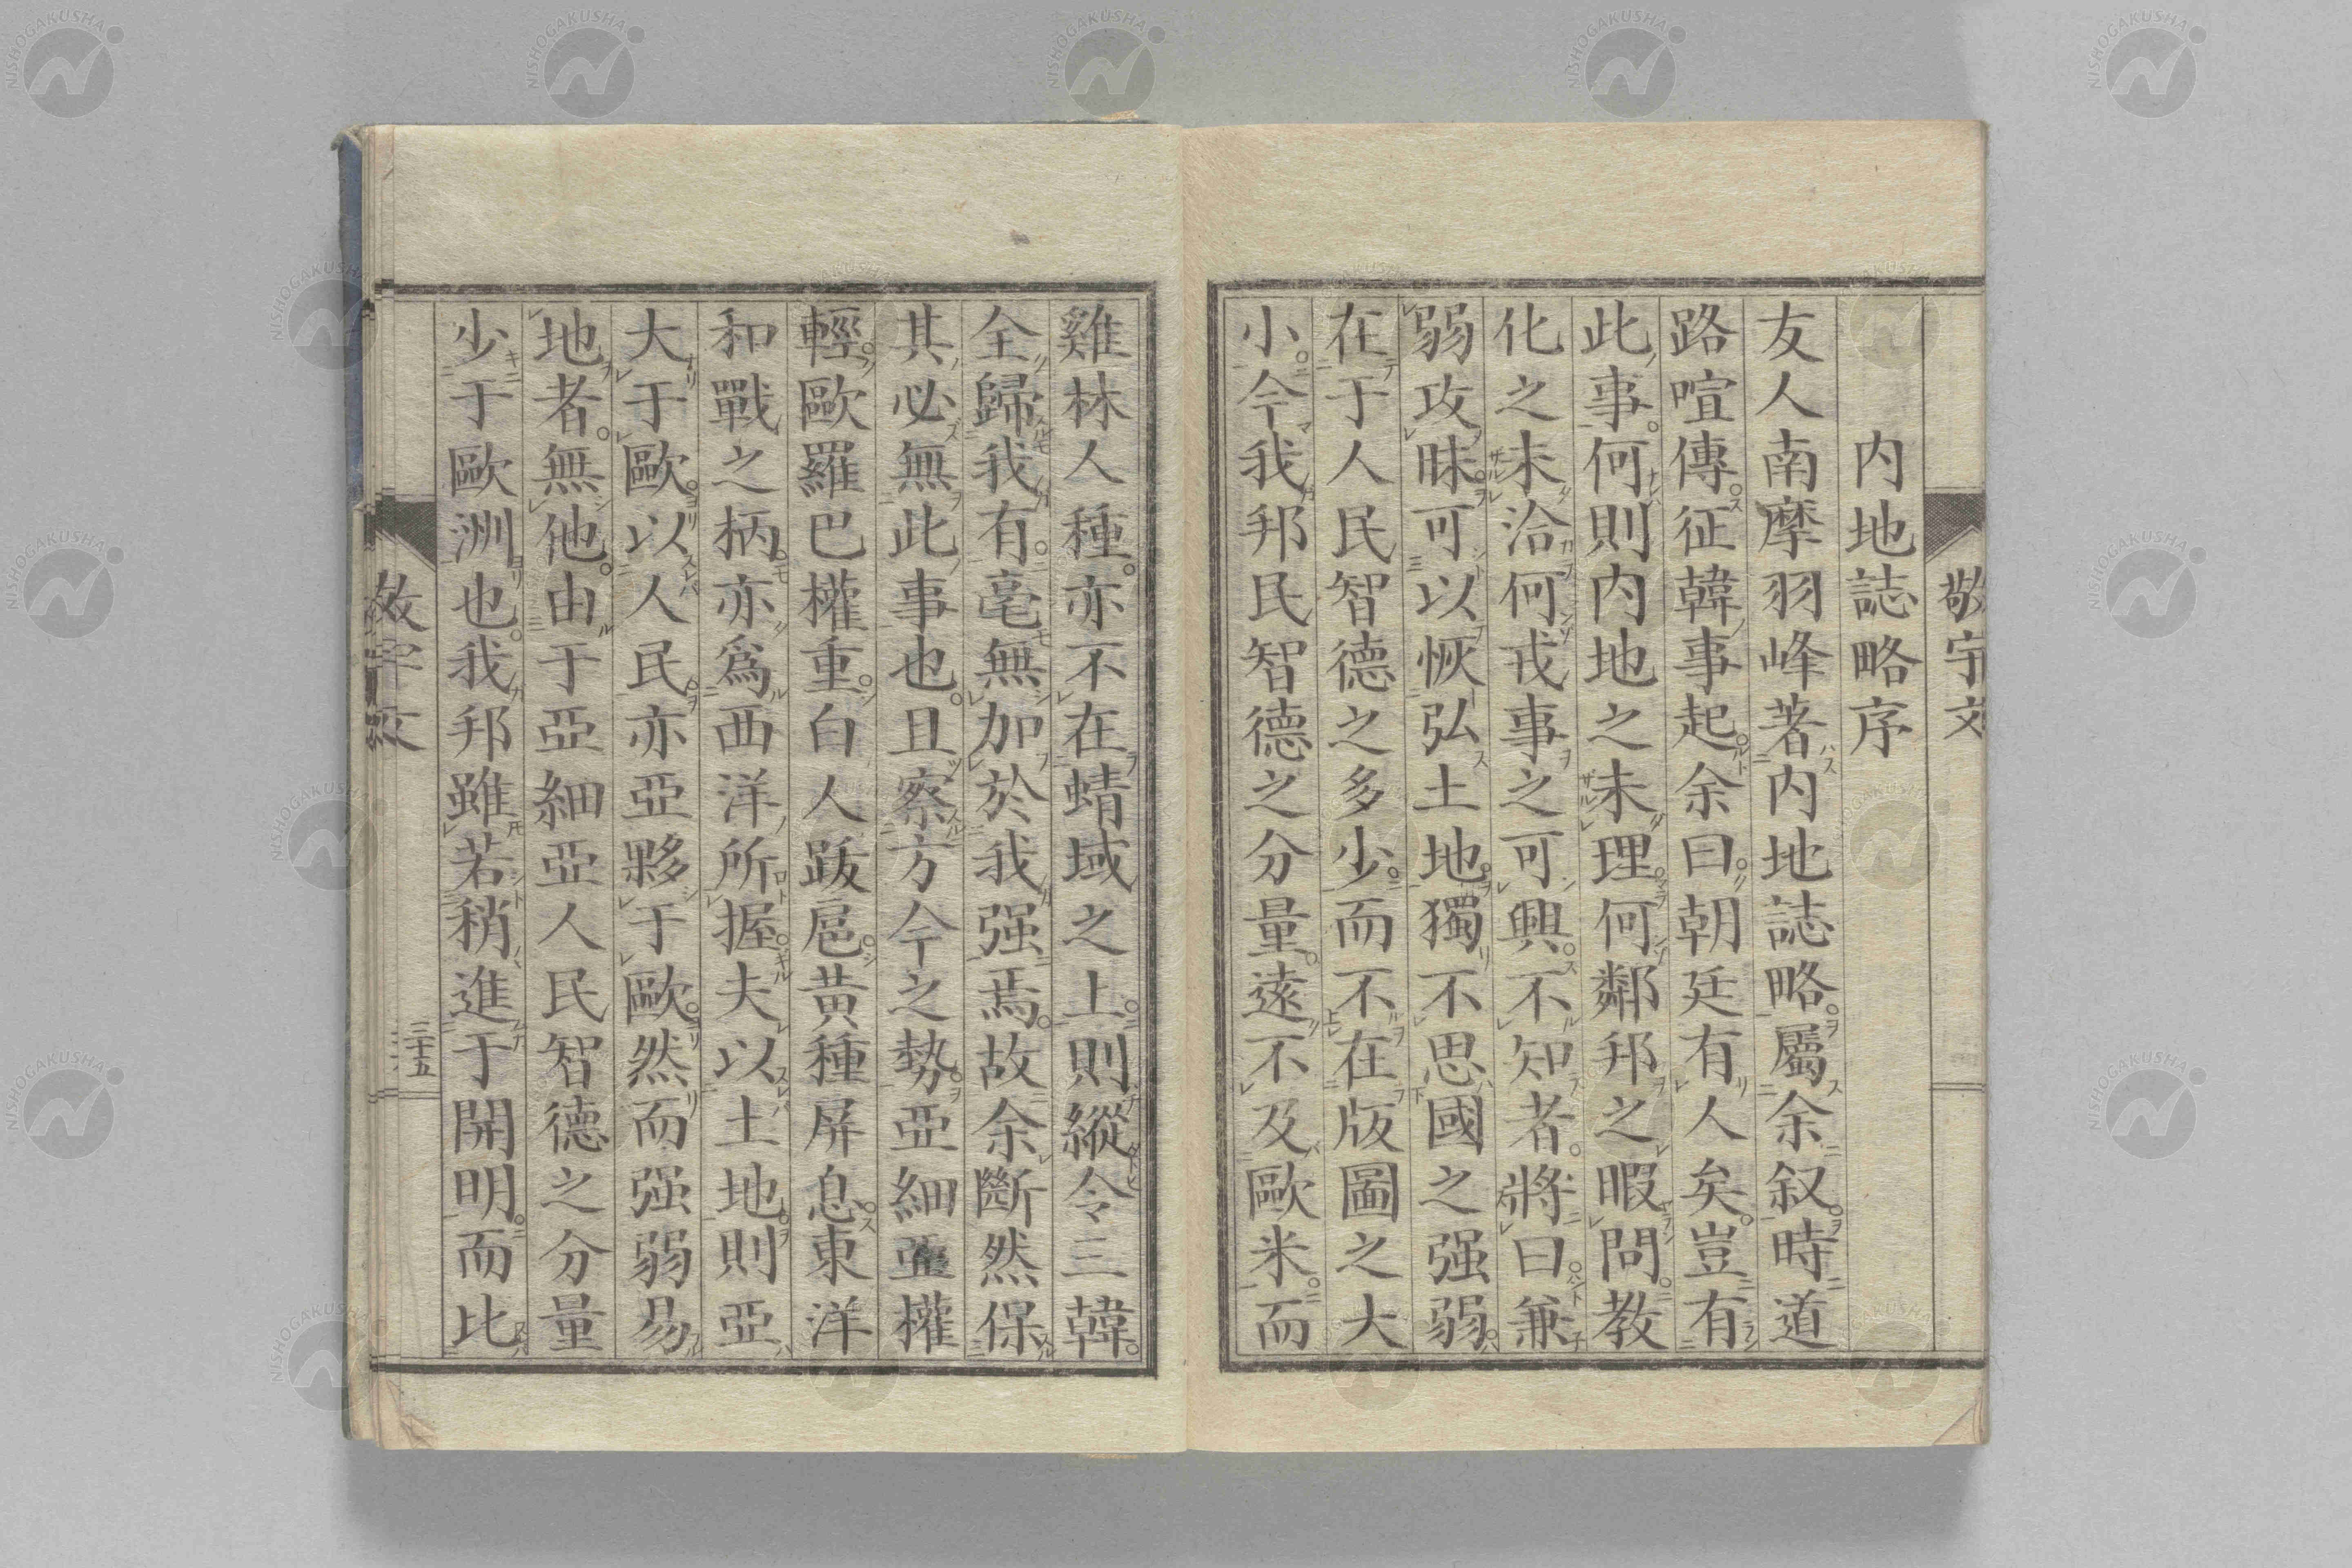 敬宇文
内地誌略序
友人南摩羽峰著内地誌略屬余叙時道
路喧傳征韓事起余曰朝廷有人矣豈有
此事何則内地之未理何鄰邦之暇問教
化之未洽何戎事之可興不知者將曰兼
弱攻昧可以恢弘土地獨不思國之强弱
在于人民智德之多少而不在版圖之大
小今我邦民智德之分量遠不及歐米而
雞林人種亦不在蜻域之上則縱令三韓
全歸我有毫無加於我强焉故余斷然保
其必無此事也且察方今之勢亞細亞權
輕歐羅巴權重白人跋扈黄種屏息東洋
和戰之柄亦爲西洋所握夫以土地則亞
大于歐以人民亦亞夥于歐然而强弱易
地者無他由于亞細亞人民智德之分量
少于歐洲也我邦雖若稍進于開明而比
敬宇文
三十五
NISHOGAKUSHA